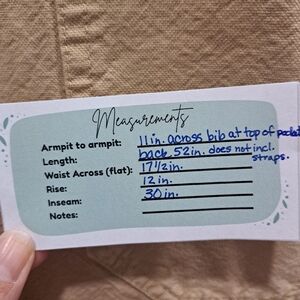 Measurements
Armpit to armpit: 11 in. across bib at top of pocket
Length: back 52 in. does not incl. straps.
Waist Across (flat): 17 1/2 in.
Rise: 12 in.
Inseam: 30 in.
Notes: